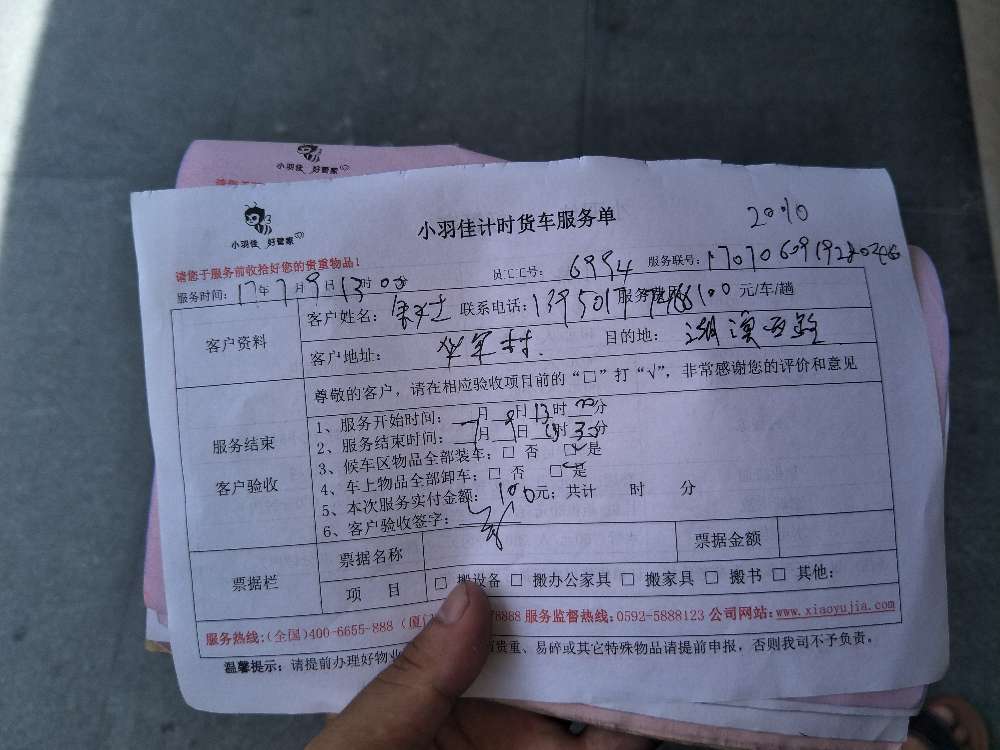 小羽佳 好管家
小羽佳 好管家
小羽佳计时货车服务单
2010
请您于服务前收拾好您的贵重物品!
服务时间: 17年7月9日13时00分 员工工号: 6994 服务联号:
客户资料
客户姓名: 联系电话: 服务费用 100 元/车/趟
客户地址: 目的地:
服务结束
客户验收
尊敬的客户,请在相应验收项目前的“□”打“√”,非常感谢您的评价和意见
1、服务开始时间: 7月9日13时00分
2、服务结束时间: 7月9日 时30分
3、候车区物品全部装车: □ 否 □ 是
4、车上物品全部卸车: □ 否 □ 是
5、本次服务实付金额: 100元; 共计 时 分
6、客户验收签字:
票据栏
票据名称
票据金额
项 目
□ 搬设备 □ 搬办公家具 □ 搬家具 □ 搬书 □ 其他:
服务热线:(全国)400-6655-888 (厦门 78888 服务监督热线: 0592-5888123 公司网站: www.xiaoyujia.com
温馨提示: 请提前办理好物业 贵重、易碎或其它特殊物品请提前申报, 否则我司不予负责。